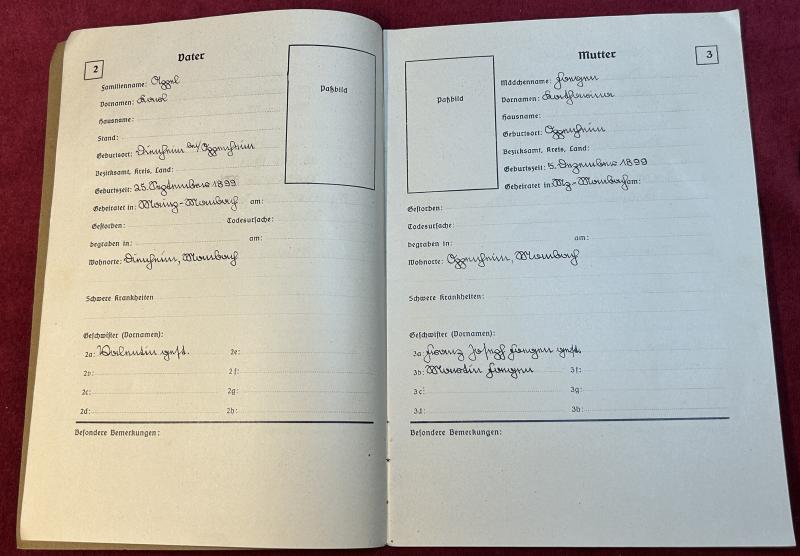 2
Vater
Familienname:
Vornamen: Karl
Hausname:
Stand:
Geburtsort: Dienheim bei/Oppenheim
Bezirksamt, Kreis, Land:
Geburtszeit: 25. September 1899
Geheiratet in: Mainz-Mombach am:
Gestorben: Todesursache:
begraben in: am:
Wohnorte: Dienheim, Mombach
Schwere Krankheiten
Geschwister (Vornamen):
2a: Valentin gest. 2e:
2b: 2f:
2c: 2g:
2d: 2h:
Besondere Bemerkungen:
Paßbild
Mutter
3
Paßbild
Mädchenname:
Vornamen: Katharina
Hausname:
Geburtsort: Oppenheim
Bezirksamt, Kreis, Land:
Geburtszeit: 5. Dezember 1899
Geheiratet in: Mz-Mombach am:
Gestorben:
Todesursache:
begraben in: am:
Wohnorte: Oppenheim, Mombach
Schwere Krankheiten:
Geschwister (Vornamen):
3a: Franz Josef gest.
3b: Martin 3f:
3c: 3g:
3d: 3h:
Besondere Bemerkungen: